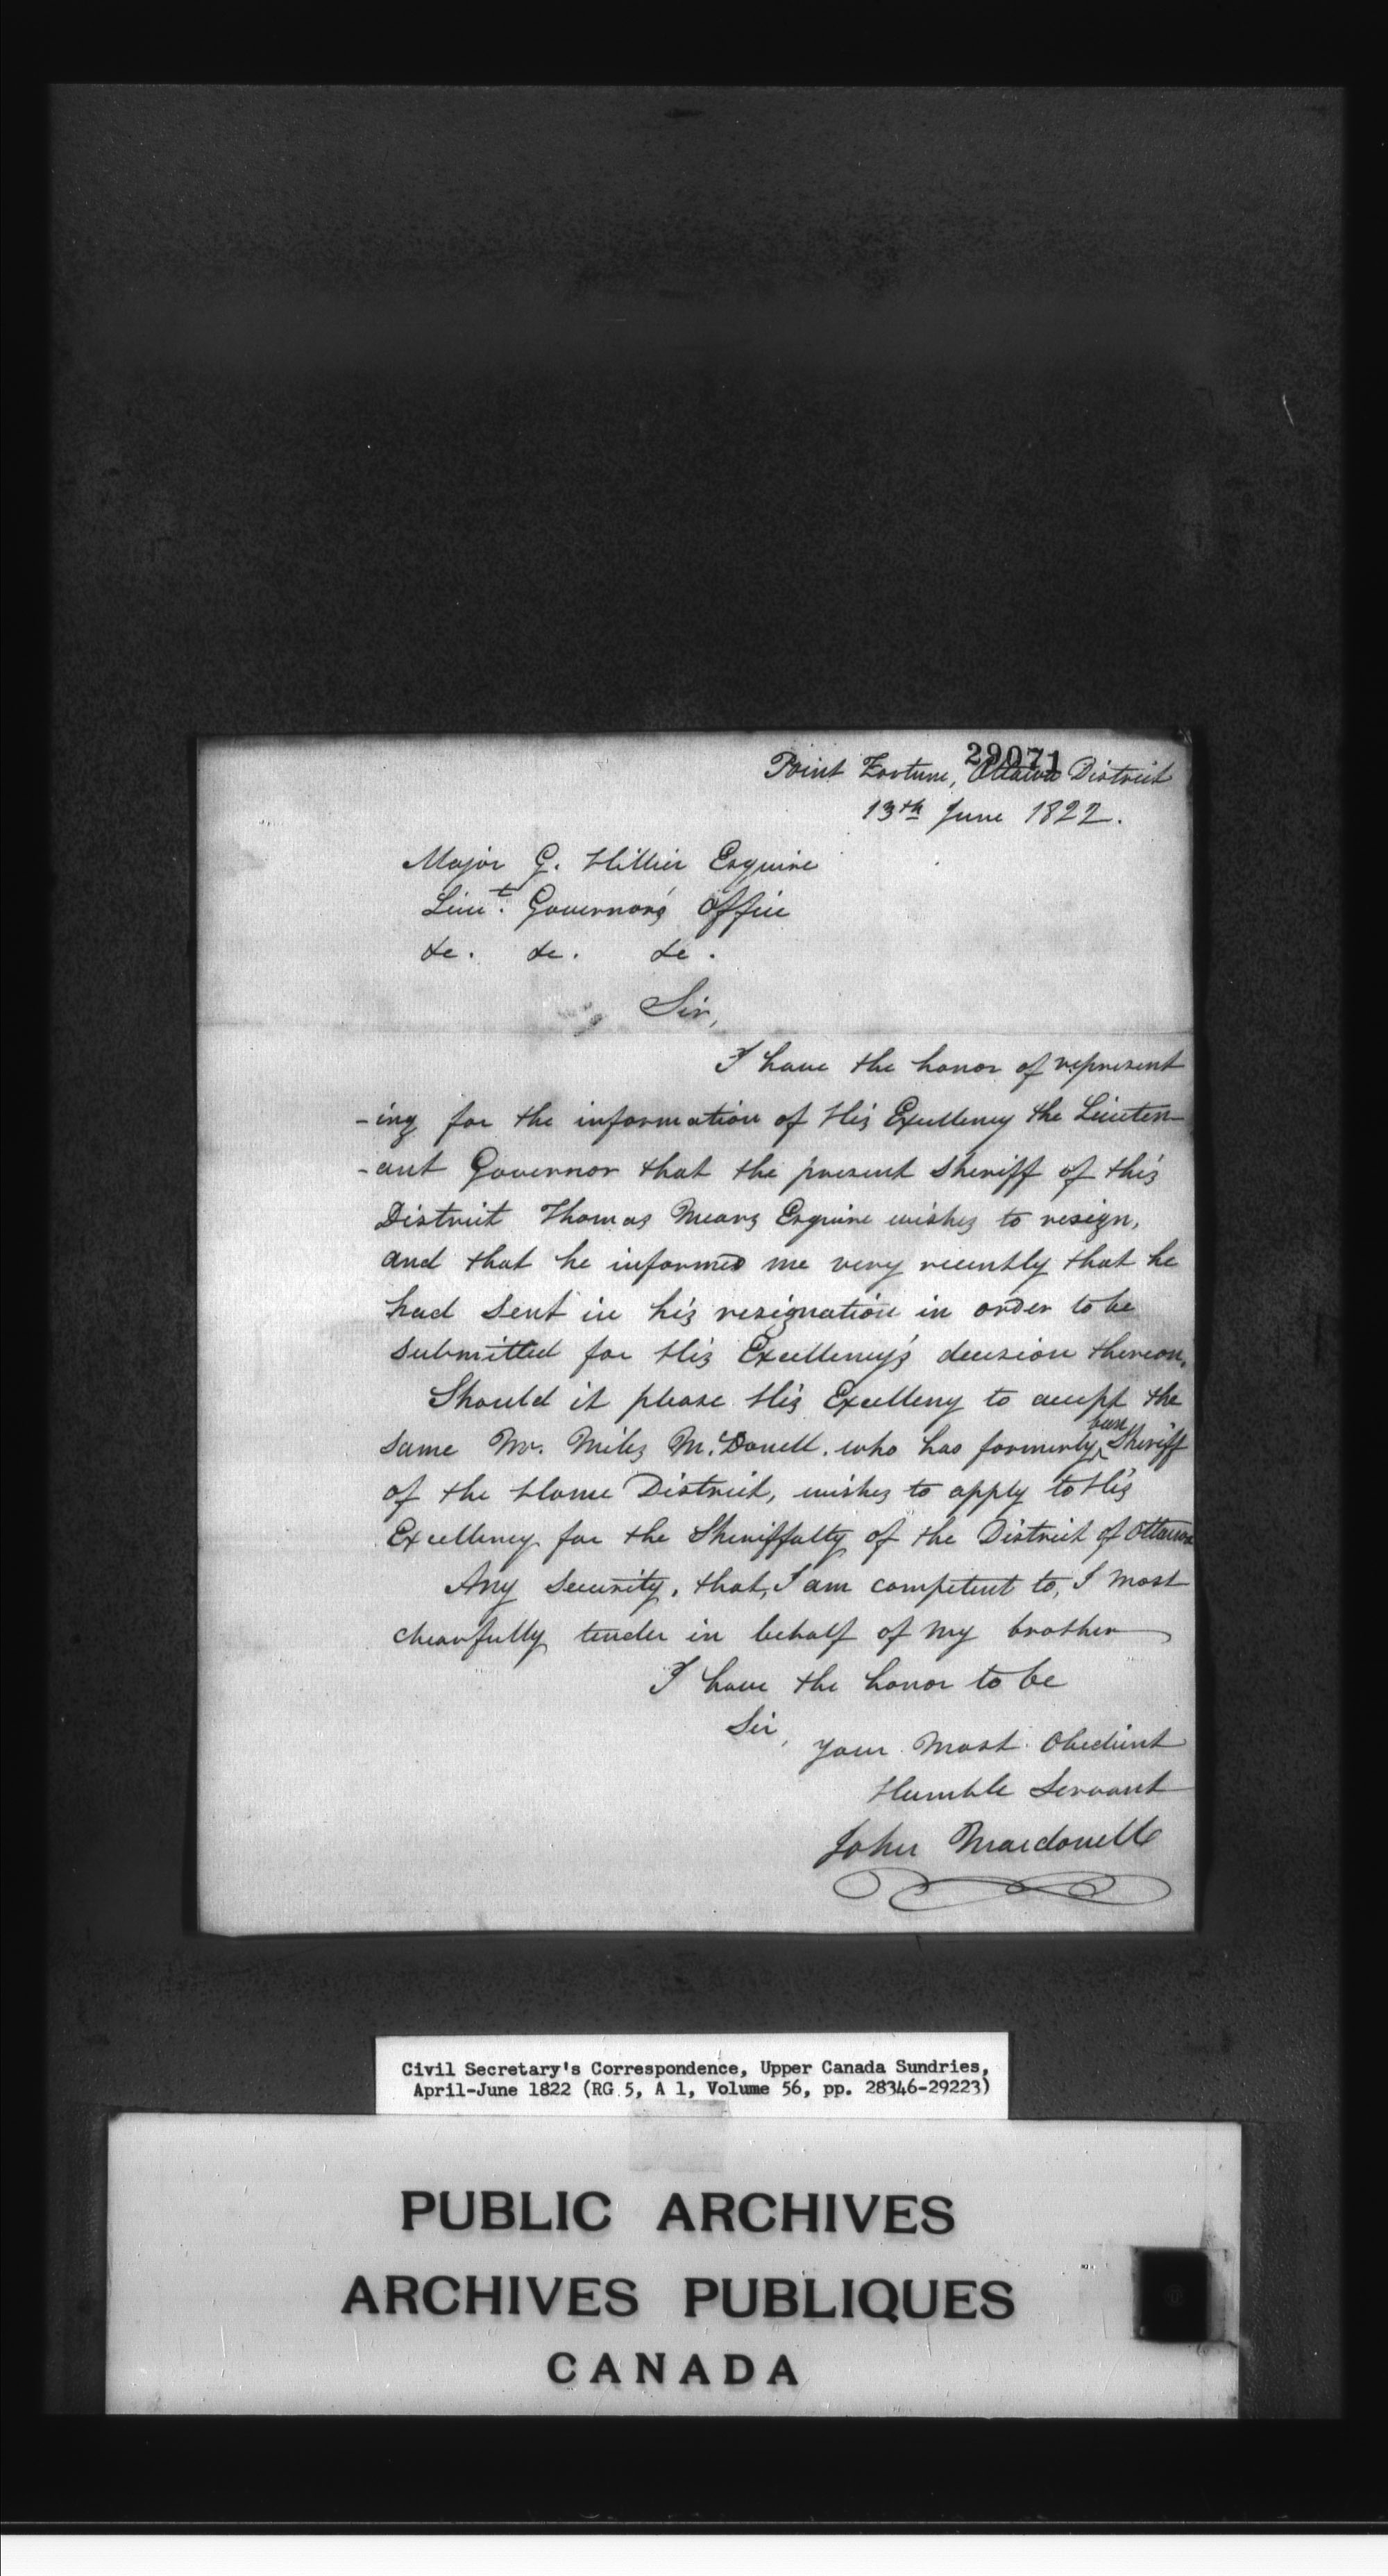 29071
Point Fortune, Ottawa District
13th June 1822.
Major G. Hillier Esquire
Lieut. Governor's Office
&c. &c. &c.
Sir,
I have the honor of represent
-ing for the information of His Excellency the Lieuten-
-ant Governor that the present Sheriff of this
District Thomas Mears Esquire wishes to resign,
and that he informed me very recently that he
had sent in his resignation in order to be
submitted for His Excellency's decision thereon.
Should it please His Excelleny to accept the
same Mr. Miles McDonell. who has formerly been Sheriff
of the Home District, wishes to apply to His
Excellency for the Sheriffalty of the District of Ottawa
Any Security, that, I am competent to, I most
chearfully tender in behalf of my brother
I have the honor to be
Sir,
your Most Obedient
Humble Servant
John Macdonell
Civil Secretary's Correspondence, Upper Canada Sundries,
April-June 1822 (RG 5, A 1, Volume 56, pp. 28346-29223)
PUBLIC ARCHIVES
ARCHIVES PUBLIQUES
CANADA